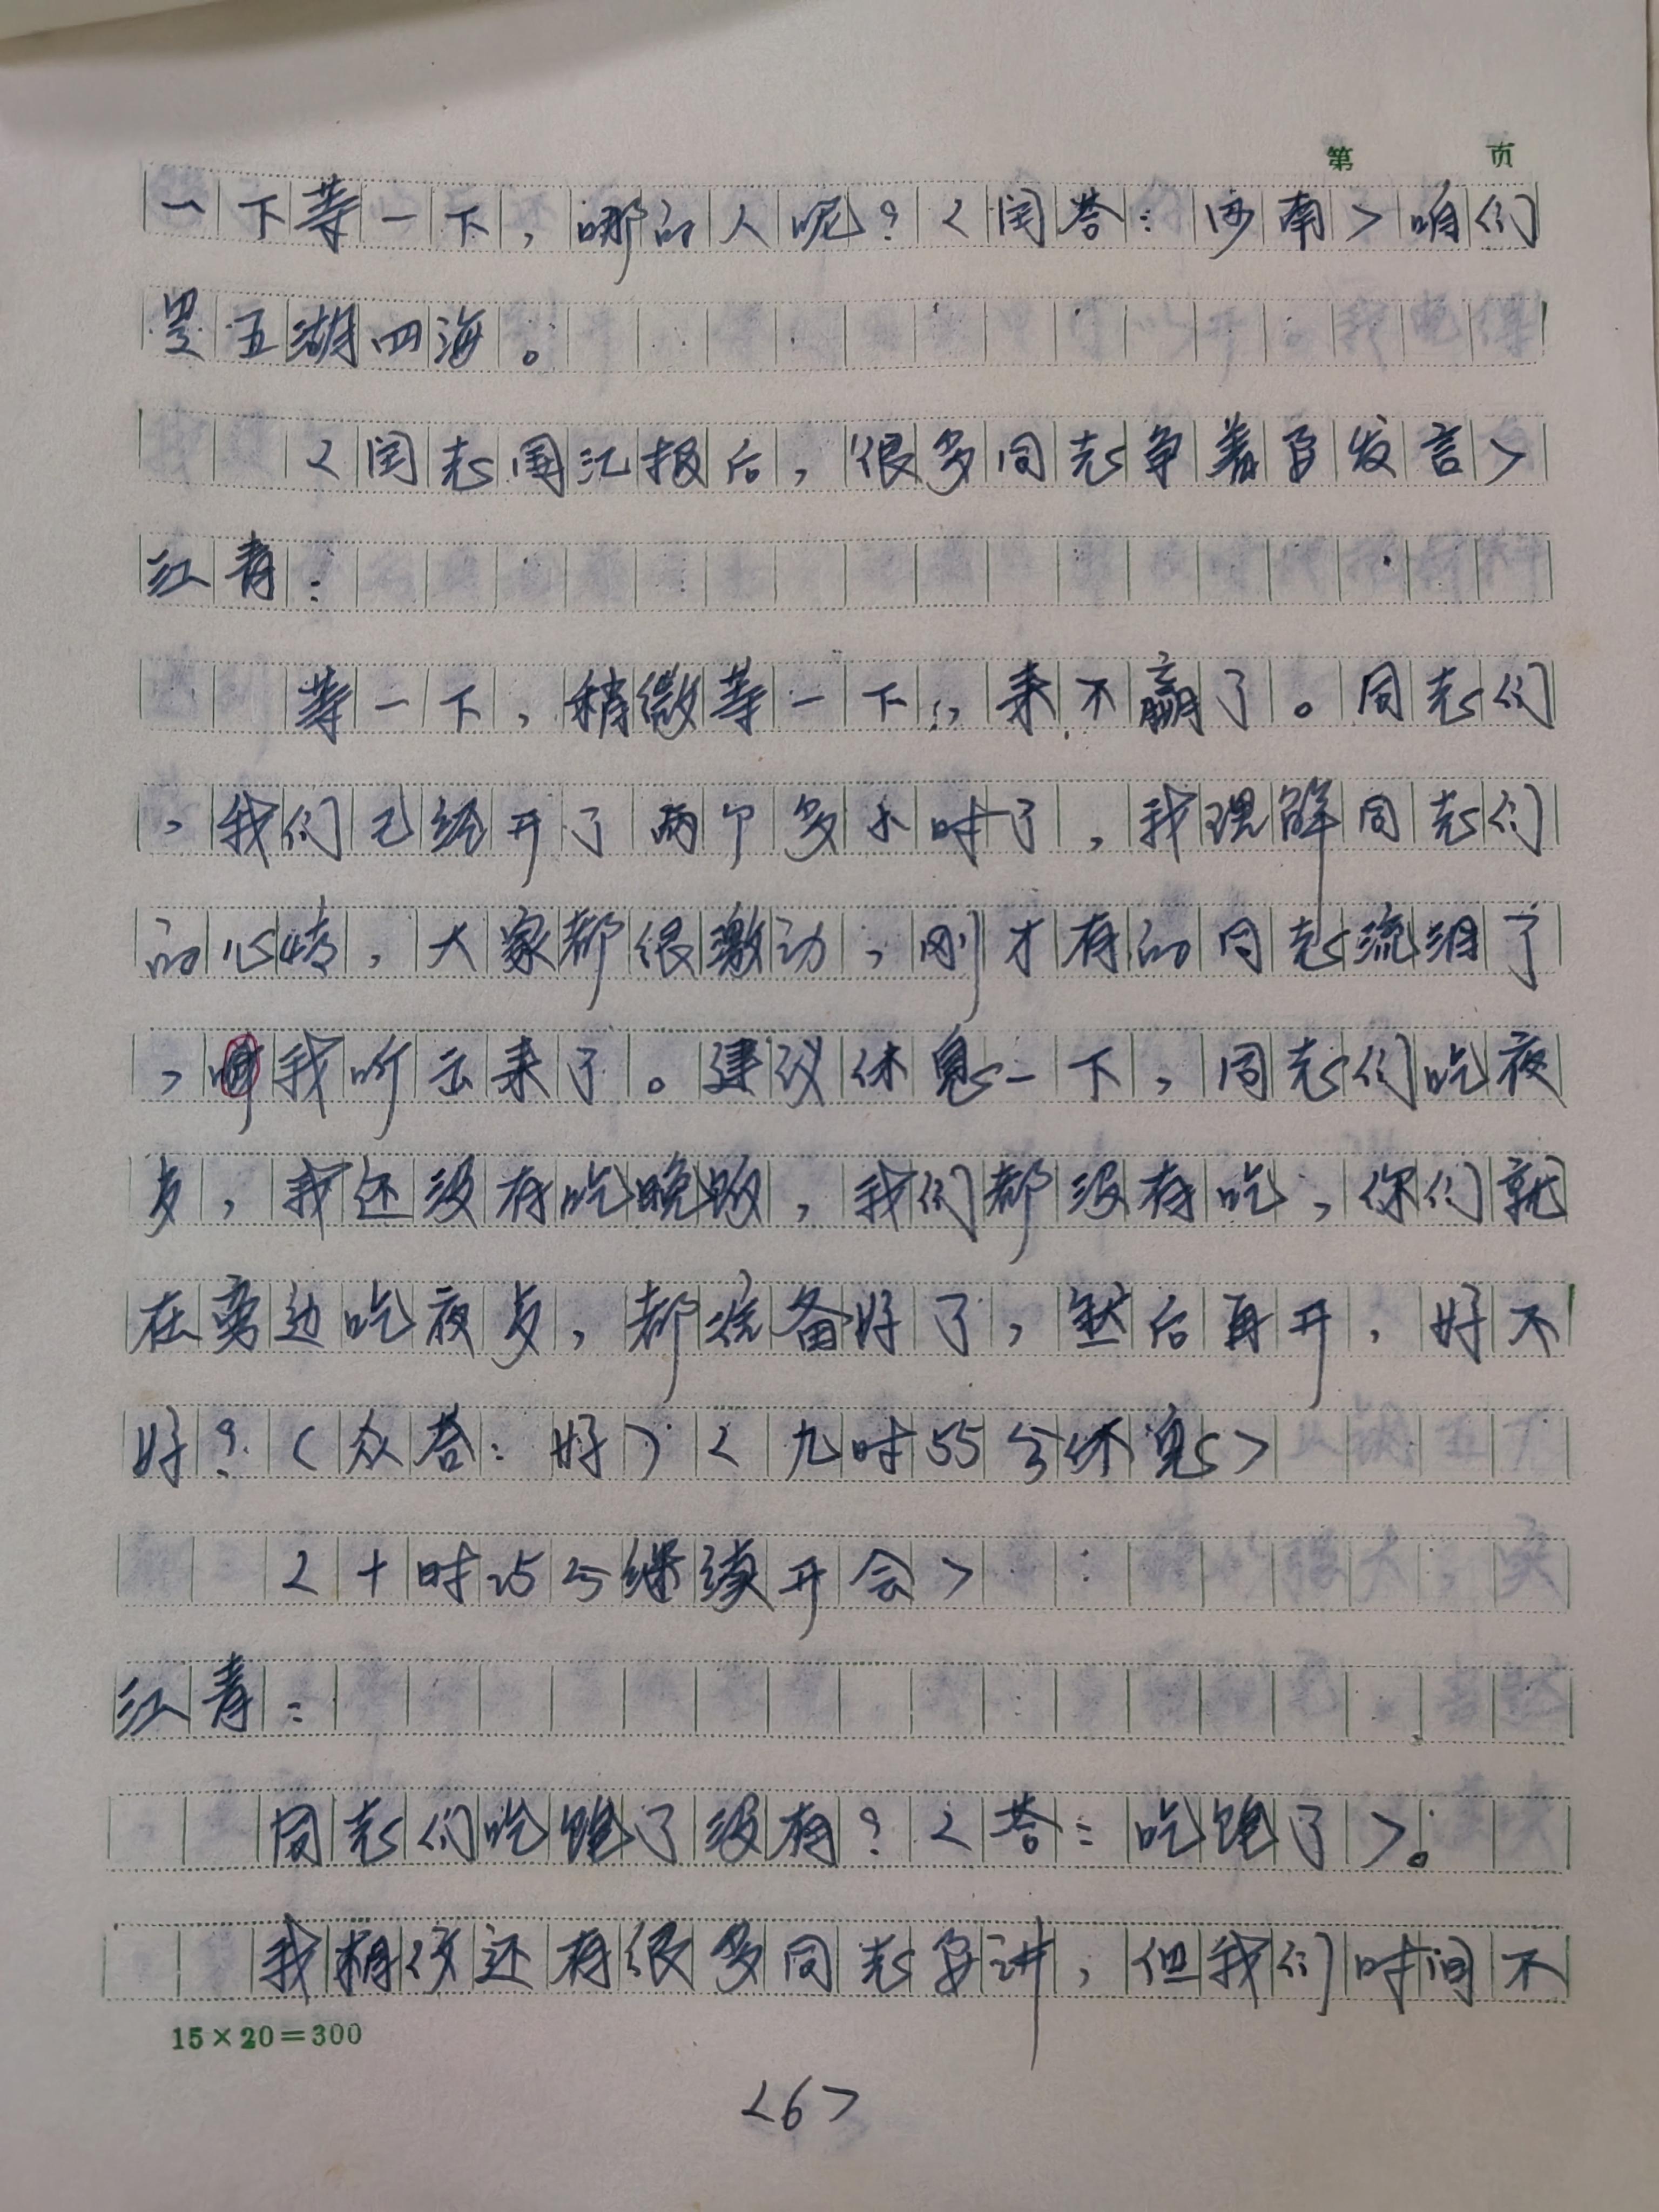 第 页
一下等一下，哪的人呢？〈闰答：河南〉咱们
是五湖四海。
〈闰志国汇报后，很多同志争着要发言〉
江青：
等一下，稍微等一下，来不赢了。同志们
，我们已经开了两个多小时了，我理解同志们
的心情，大家都很激动，刚才有的同志流泪了
，我听出来了。建议休息一下，同志们吃夜
点，我还没有吃晚饭，我们都没有吃，你们就
在旁边吃夜点，都准备好了，然后再开，好不
好？（众答：好）〈九时55分休息〉
〈十时25分继续开会〉
江青：
同志们吃饱了没有？〈答：吃饱了〉。
我相信还有很多同志要讲，但我们时间不
15×20=300
〈6〉